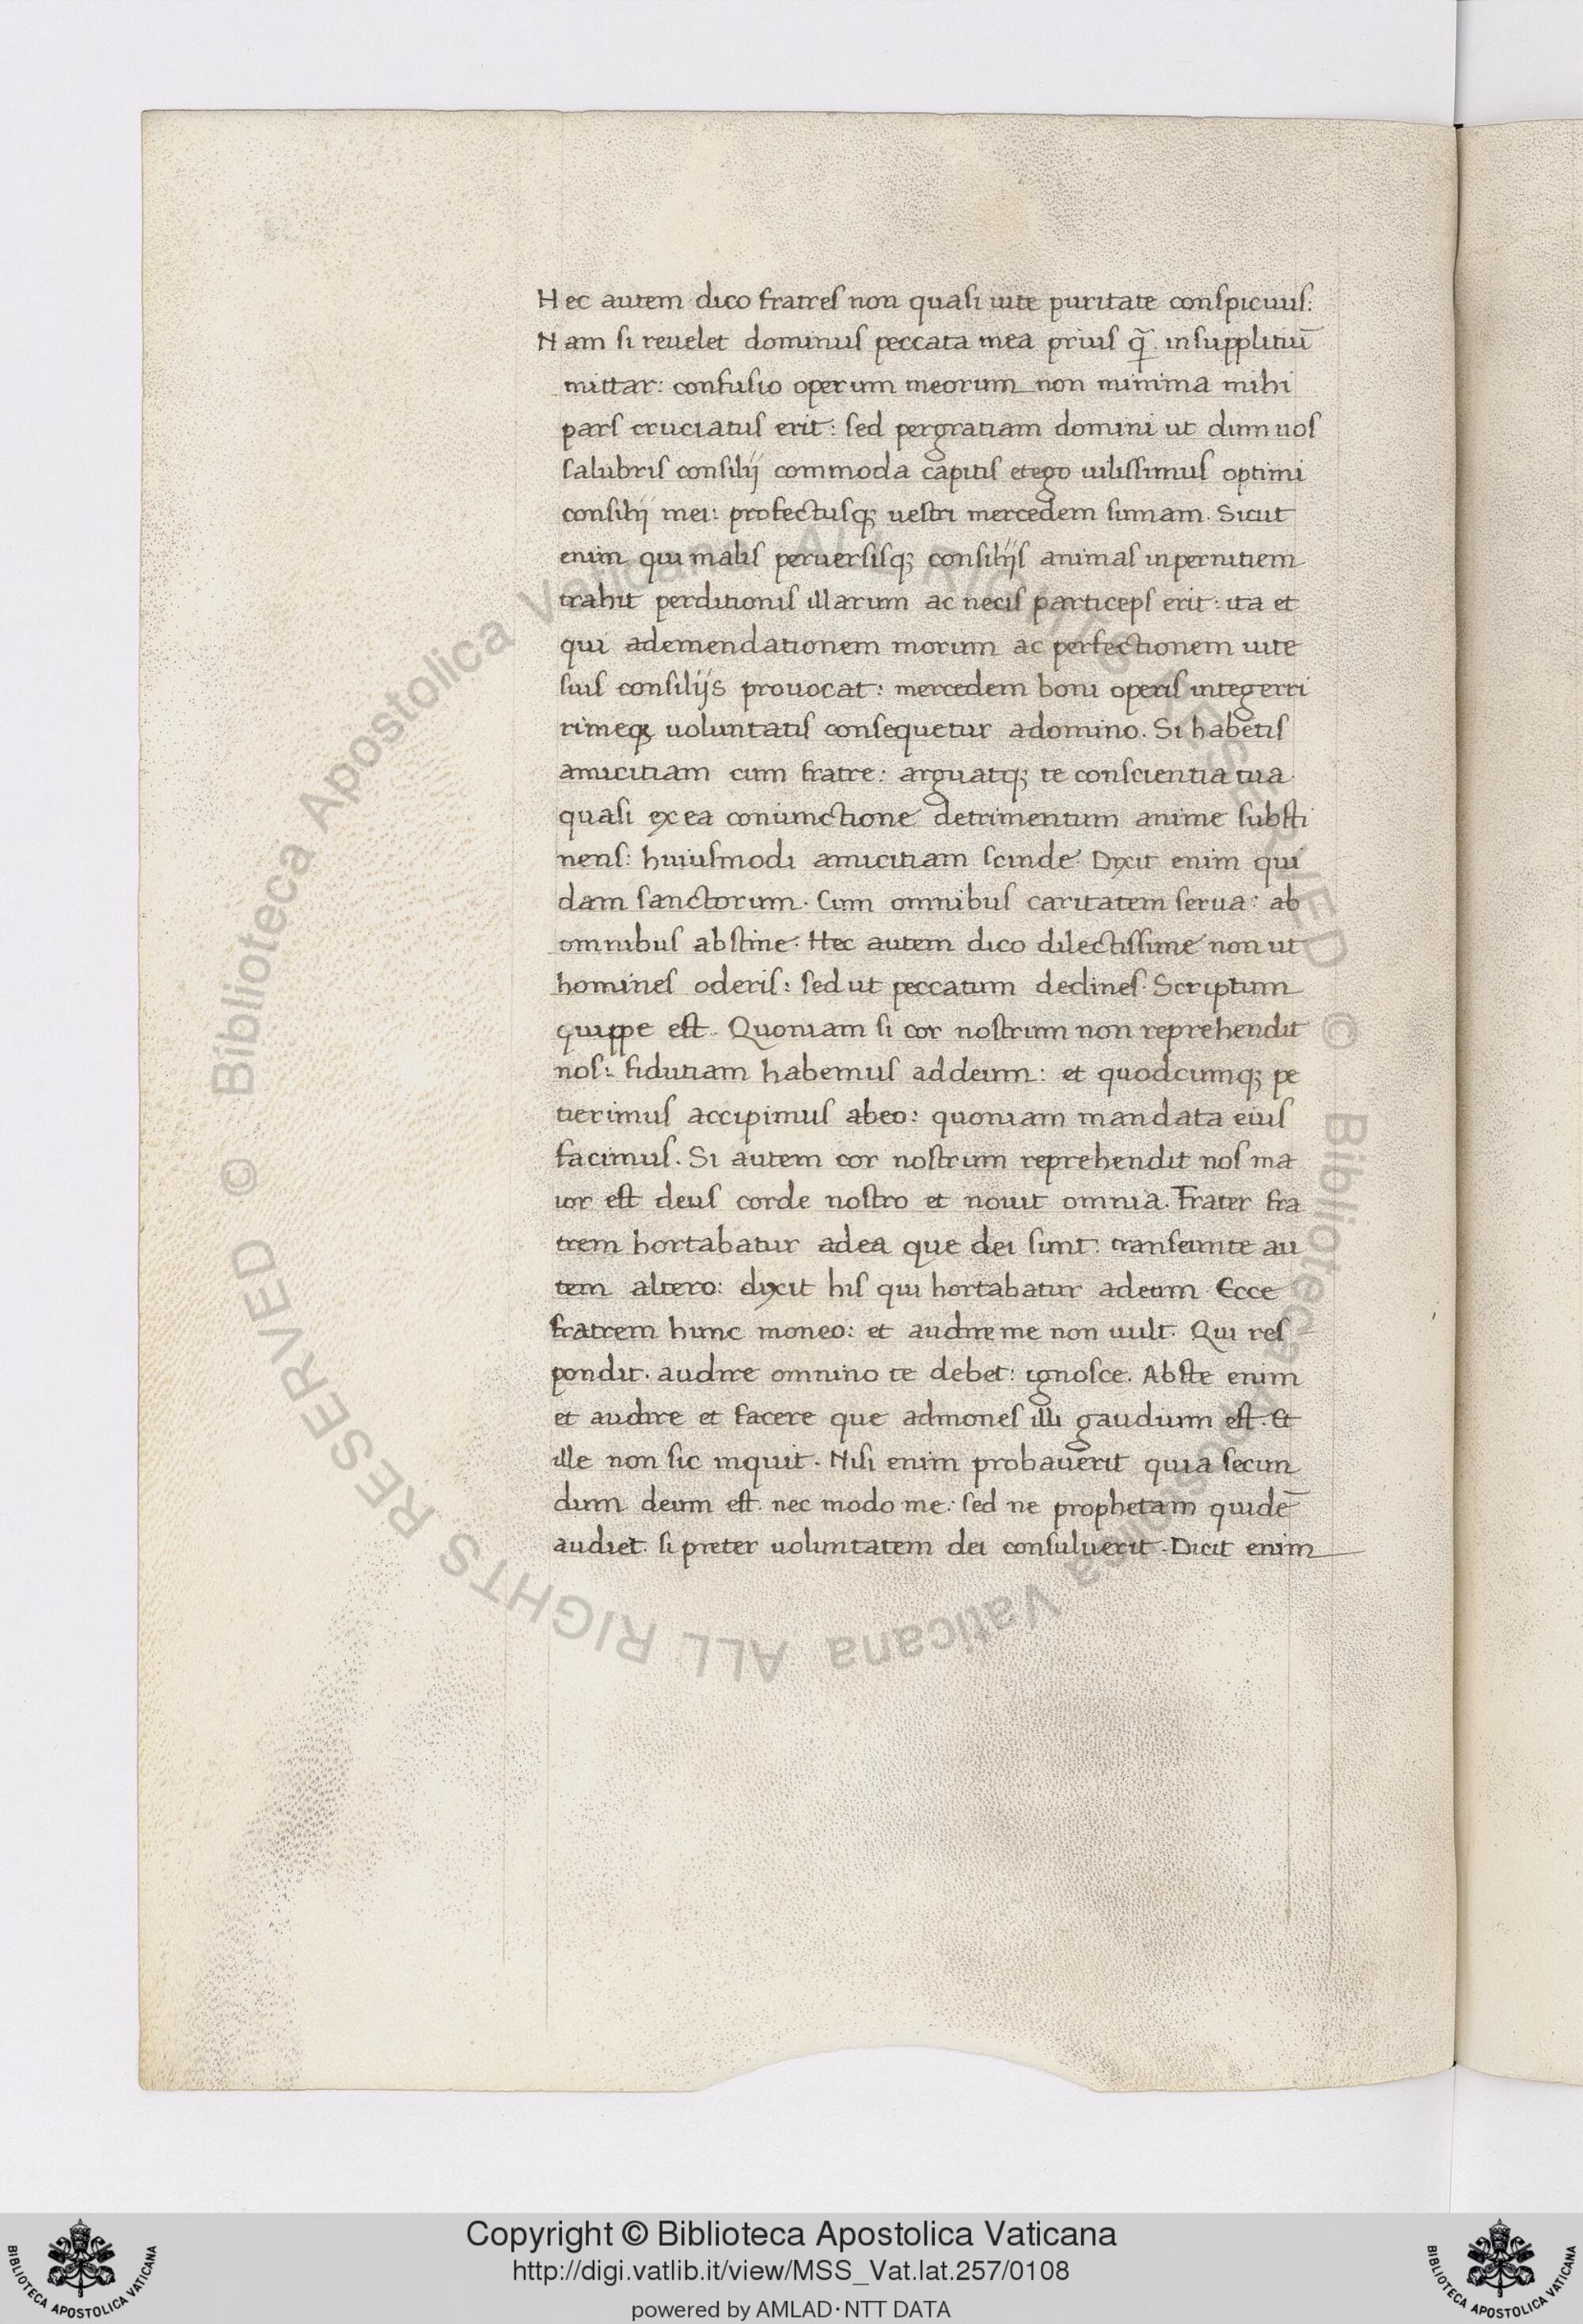 Hec autem dico fratres non quasi uite puritate conspicuus:
Nam si reuelet dominus peccata mea prius q̃ insupplitiũ
mittar: confusio operum meorum non minima mihi
pars cruciatus erit: sed pergratiam domini ut dum uos
salubris consilij commoda capitis etego uilissimus optimi
consilij mei: profectusq; uestri mercedem sumam. Sicut
enim qui malis peruersisq; consilijs animas inpernitiem
trahit perditionis illarum ac necis particeps erit: ita et
qui ademendationem morum ac perfectionem uite
suis consilijs prouocat: mercedem boni operis integerri
rimeq; uoluntatis consequetur adomino. Si habetis
amicitiam cum fratre: arguatq; te conscientia tua
quasi ex ea coniunctione detrimentum anime substi
nens: huiusmodi amicitiam scinde. Dixit enim qui
dam sanctorum. Cum omnibus caritatem serua: ab
omnibus abstine. Hec autem dico dilectissime non ut
homines oderis: sed ut peccatum declines. Scriptum
quippe est. Quoniam si cor nostrum non reprehendit
nos: fidutiam habemus addeum: et quodcumq; pe
tierimus accipimus abeo: quoniam mandata eius
facimus. Si autem cor nostrum reprehendit nos ma
ior est deus corde nostro et nouit omnia. Frater fra
trem hortabatur adea que dei sunt: transeunte au
tem altero: dixit his qui hortabatur adeum Ecce
fratrem hunc moneo: et audire me non uult. Qui res
pondit. audire omnino te debet: ignosce. Abste enim
et audire et facere que admones illi gaudium est. Et
ille non sic inquit. Nisi enim probauerit quia secun
dum deum est. nec modo me: sed ne prophetam quidē
audiet. si preter uoluntatem dei consuluerit. Dicit enim
© Biblioteca Apostolica Vaticana ALL RIGHTS RESERVED © Biblioteca Apostolica Vaticana ALL RIGHTS RESERVED
Copyright © Biblioteca Apostolica Vaticana
http://digi.vatlib.it/view/MSS_Vat.lat.257/0108
powered by AMLAD·NTT DATA
BIBLIOTECA APOSTOLICA VATICANA
BIBLIOTECA APOSTOLICA VATICANA